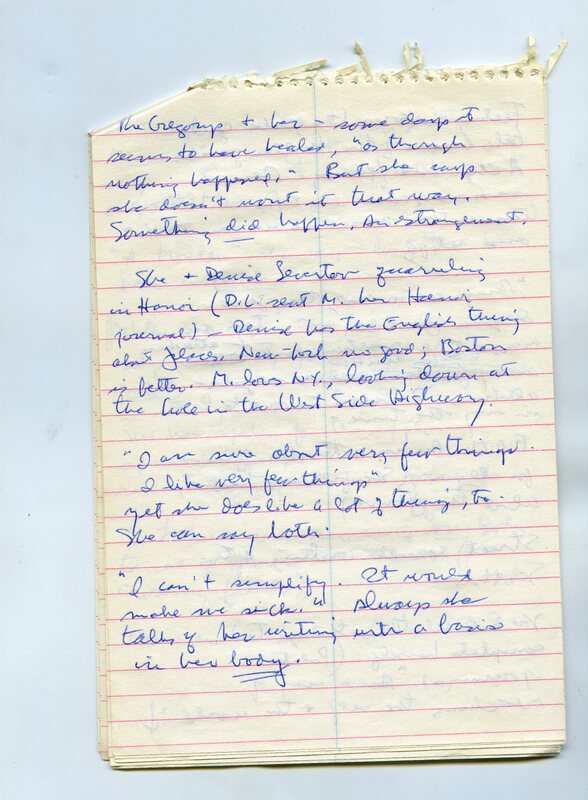 The Gregorys + her – some days it
seems to have healed, "as though
nothing happened." But she says
she doesn't want it that way.
Something did happen. An estrangement.
She + Denise Levertov quarreling
in Hanoi (D.L. sent M. her Hanoi
journal) – Denise has the English thing
about places. New York no good; Boston
is better. M. loves N.Y., looking down at
the hole in the West Side Highway.
"I am sure about very few things.
I like very few things"
yet she does like a lot of things, too.
She can say both.
"I can't simplify. It would
make me sick." Always she
talks of her writing with a basis
in her body.